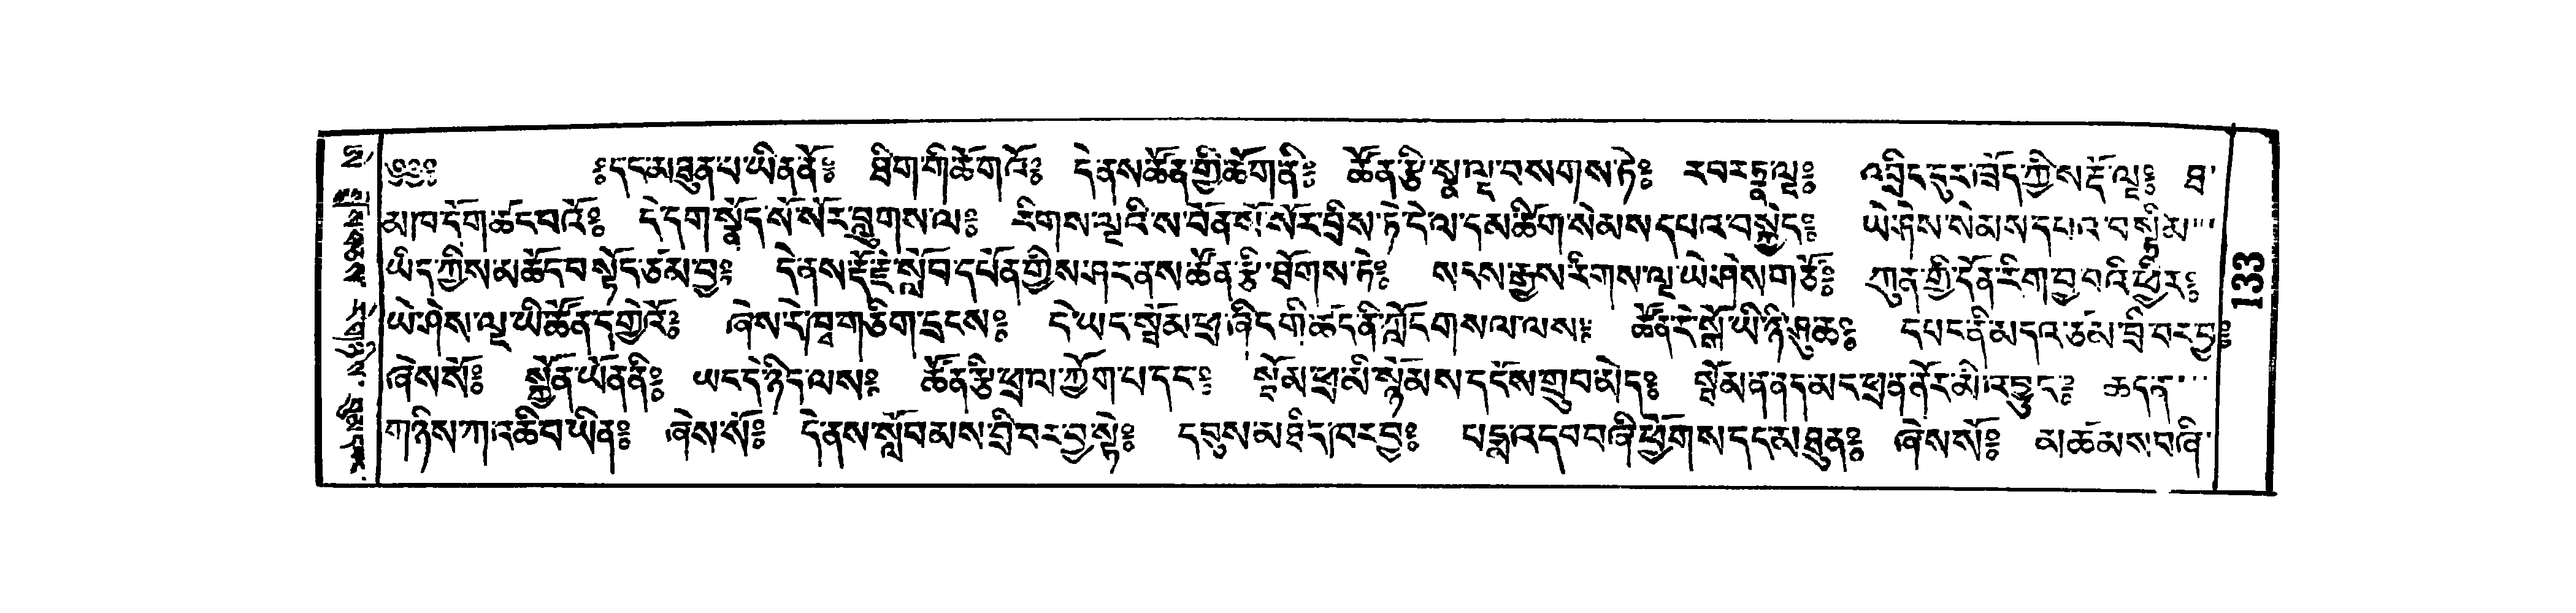 ༄༅༔ ༔དང་མཐུན་པ་ཡིན་ནོ༔ ཐིག་གི་ཚོགས་འོ༔ དེ་ནས་ཚོན་གྱི་ཚོགས་ནི༔ ཚོན་རྩི་སྣ་ལྔ་བསགས་ཏེ༔ རབ་རྡུལ་ལྔ༔ འབྲིང་དུར་བྲོད་ཀྱིས་རྡོ་ལྔ༔ ཐ་
མ་ཁ་དོག་ཚང་བའོ༔ དེ་དག་སྣོད་སོ་སོར་བླུགས་ལ༔ རིགས་ལྔའི་ས་བོན་སོ་སོར་བྲིས་ཏེ་དེ་ལ་དམ་ཚིག་སེམས་དཔའ་བསྐྱེད༔ ཡེ་ཤེས་སེམས་དཔའ་བསྟིམ
ཡིད་ཀྱིས་མཆོད་བསྟོད་ཙམ་བྱ༔ དེ་ནས་རྡོ་རྗེ་སློབ་དཔོན་གྱིས་ཤར་ནས་ཚོན་རྩི་ཐོགས་ཏེ༔ སངས་རྒྱས་རིགས་ལྔ་ཡེ་ཤེས་གཙོ༔ ཀུན་གྱི་དོན་རིག་བྱ་བའི་ཕྱིར༔
ཡེ་ཤེས་ལྔ་ཡི་ཚོན་དགྱེའོ༔ ཞེས་རེ་ཁ་གཅིག་དྲངས༔ དེ་ཡང་སྦོམ་ཕྲ་ཞིང་གི་ཚད་ནི་ཀློད་གསལ་ལས༔ ཚོན་ནི་སྒོ་ཡི་ཉི་ཤུ་ཆ༔ དཔང་ནི་མདའ་ཙམ་བྲི་བར་བྱ༔
ཞེས་སོ༔ སྐྱོན་ཡོན་ནི༔ ཡང་དེ་ཉིད་ལས༔ ཚོན་རྩི་ཕྲལ་ཀྱོག་པ་དང༔ སྦོམ་ཕྲ་མི་སྙོམས་དངོས་གྲུབ་མེད༔ སྦོམ་ན་ནད་མང་ཕྲ་ན་ནོར་མི་འབྱུང༔ ཆད་ན་
གཉིས་ཀ་འཆི་བ་ཡིན༔ ཞེས་སོ༔ དེ་ནས་སློབ་མས་བྲི་བར་བྱ་སྟེ༔ དབུས་མཐིང་ཁར་བྱ༔ པདྨ་འདབ་བཞི་ཕྱོགས་དང་མཐུན༔ ཞེས་སོ༔ མཚམས་བཞི་
133